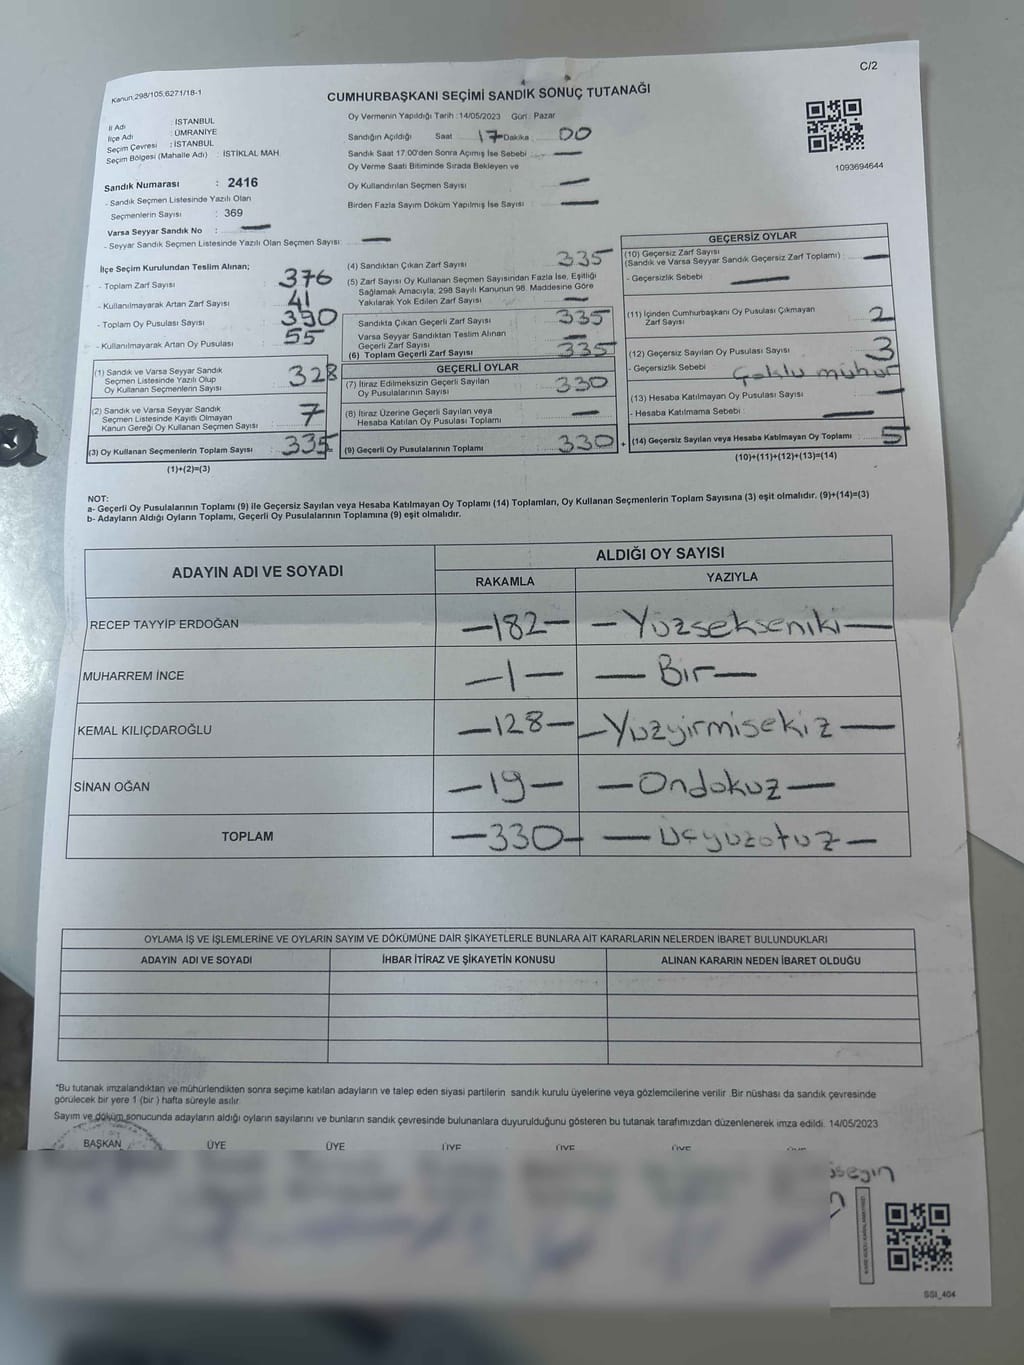 C/2
Kanun,298/105,6271/18-1
CUMHURBAŞKANI SEÇİMİ SANDIK SONUÇ TUTANAĞI
Oy Vermenin Yapıldığı Tarih :14/05/2023 Gün : Pazar
İl Adı : İSTANBUL
İlçe Adı : ÜMRANİYE
Seçim Çevresi : İSTANBUL
Seçim Bölgesi (Mahalle Adı) : İSTİKLAL MAH.
Sandığın Açıldığı Saat 17 Dakika 00
Sandık Saat 17.00'den Sonra Açımış İse Sebebi —
Oy Verme Saati Bitiminde Sırada Bekleyen ve
Oy Kullandırılan Seçmen Sayısı —
Birden Fazla Sayım Döküm Yapılmış İse Sayısı —
1093694644
Sandık Numarası : 2416
- Sandık Seçmen Listesinde Yazılı Olan
Seçmenlerin Sayısı : 369
Varsa Seyyar Sandık No : —
- Seyyar Sandık Seçmen Listesinde Yazılı Olan Seçmen Sayısı: —
İlçe Seçim Kurulundan Teslim Alınan;
- Toplam Zarf Sayısı 376
- Kullanılmayarak Artan Zarf Sayısı 41
- Toplam Oy Pusulası Sayısı 390
- Kullanılmayarak Artan Oy Pusulası 55
(1) Sandık ve Varsa Seyyar Sandık
Seçmen Listesinde Yazılı Olup
Oy Kullanan Seçmenlerin Sayısı 328
(2) Sandık ve Varsa Seyyar Sandık
Seçmen Listesinde Kayıtlı Olmayan
Kanun Gereği Oy Kullanan Seçmen Sayısı 7
(3) Oy Kullanan Seçmenlerin Toplam Sayısı 335
(1)+(2)=(3)
(4) Sandıktan Çıkan Zarf Sayısı 335
(5) Zarf Sayısı Oy Kullanan Seçmen Sayısından Fazla İse, Eşitliği
Sağlamak Amacıyla, 298 Sayılı Kanunun 98. Maddesine Göre
Yakılarak Yok Edilen Zarf Sayısı —
Sandıkta Çıkan Geçerli Zarf Sayısı 335
Varsa Seyyar Sandıktan Teslim Alınan
Geçerli Zarf Sayısı —
(6) Toplam Geçerli Zarf Sayısı 335
GEÇERLİ OYLAR
(7) İtiraz Edilmeksizin Geçerli Sayılan
Oy Pusulasının Sayısı 330
(8) İtiraz Üzerine Geçerli Sayılan veya
Hesaba Katılan Oy Pusulası Toplamı —
(9) Geçerli Oy Pusulalarının Toplamı 330 +
GEÇERSİZ OYLAR
(10) Geçersiz Zarf Sayısı
(Sandık ve Varsa Seyyar Sandık Geçersiz Zarf Toplamı) : —
- Geçersizlik Sebebi : —
(11) İçinden Cumhurbaşkanı Oy Pusulası Çıkmayan
Zarf Sayısı 2
(12) Geçersiz Sayılan Oy Pusulası Sayısı 3
- Geçersizlik Sebebi : Çoklu mühür
(13) Hesaba Katılmayan Oy Pusulası Sayısı —
- Hesaba Katılmama Sebebi : —
(14) Geçersiz Sayılan veya Hesaba Katılmayan Oy Toplamı 5
(10)+(11)+(12)+(13)=(14)
NOT:
a- Geçerli Oy Pusulalarının Toplamı (9) ile Geçersiz Sayılan veya Hesaba Katılmayan Oy Toplamı (14) Toplamları, Oy Kullanan Seçmenlerin Toplam Sayısına (3) eşit olmalıdır. (9)+(14)=(3)
b- Adayların Aldığı Oyların Toplamı, Geçerli Oy Pusulalarının Toplamına (9) eşit olmalıdır.
ADAYIN ADI VE SOYADI
ALDIĞI OY SAYISI
RAKAMLA YAZIYLA
RECEP TAYYİP ERDOĞAN —182— —Yüzsekseniki—
MUHARREM İNCE —1— —Bir—
KEMAL KILIÇDAROĞLU —128— —Yüzyirmisekiz—
SİNAN OĞAN —19— —Ondokuz—
TOPLAM —330— —Üçyüzotuz—
OYLAMA İŞ VE İŞLEMLERİNE VE OYLARIN SAYIM VE DÖKÜMÜNE DAİR ŞİKAYETLERLE BUNLARA AİT KARARLARIN NELERDEN İBARET BULUNDUKLARI
ADAYIN ADI VE SOYADI İHBAR İTİRAZ VE ŞİKAYETİN KONUSU ALINAN KARARIN NEDEN İBARET OLDUĞU
*Bu tutanak imzalandıktan ve mühürlendikten sonra seçime katılan adayların ve talep eden siyasi partilerin sandık kurulu üyelerine veya gözlemcilerine verilir. Bir nüshası da sandık çevresinde
görülecek bir yere 1 (bir) hafta süreyle asılır.
Sayım ve döküm sonucunda adayların aldığı oyların sayılarını ve bunların sandık çevresinde bulunanlara duyurulduğunu gösteren bu tutanak tarafımızdan düzenlenerek imza edildi. 14/05/2023
BAŞKAN ÜYE ÜYE ÜYE ÜYE ÜYE
SSI_404